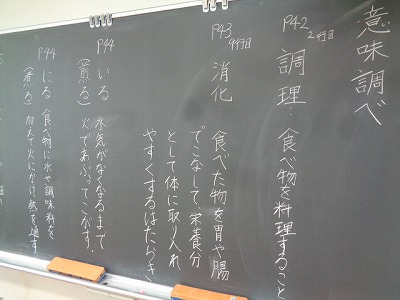 意味調べ
P42
2行目
調理…食べ物を料理すること
P43
9行目
消化…食べた物を胃や腸
でこなして、栄養分
として体に取り入れ
やすくするはたらき。
P44
いる
(煎る)
水気がなくなるまで
火であぶってこがす。
P44
にる
(煮る)
食べ物に水や調味料を
加えて火にかけ、熱を通す